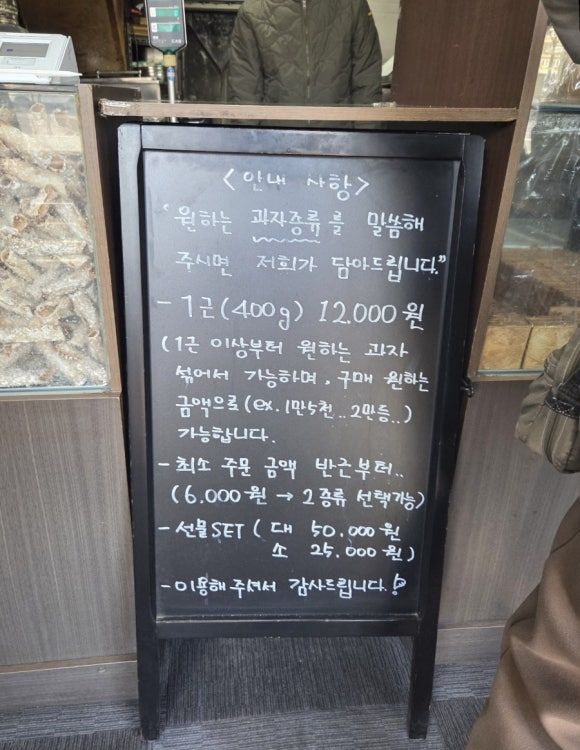 <안내 사항>
"원하는 과자종류를 말씀해
주시면 저희가 담아드립니다."
- 1근(400g) 12.000원
(1근 이상부터 원하는 과자
섞어서 가능하며, 구매 원하는
금액으로(ex. 1만5천.. 2만등..)
가능합니다.
- 최소 주문 금액 반근부터..
(6.000원 → 2종류 선택가능)
- 선물SET ( 대 50.000원
소 25.000원)
- 이용해주셔서 감사드립니다.!